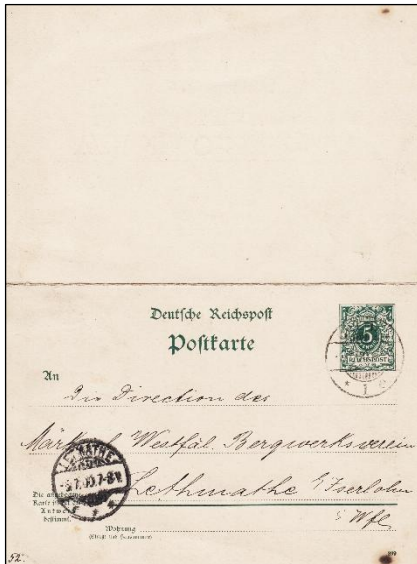 Deutsche Reichspost
Postkarte
5
REICHSPOST
An
Die Direction des
Märkisch Westfäl. Bergwerksverein
Lethmathe b/Iserlohn
i/Wfl.
LETMATHE
7-8V
* 1 e
Die
Karte ist
Antwort
bestimmt.
Wohnung
(Straße und Hausnummer)
52.